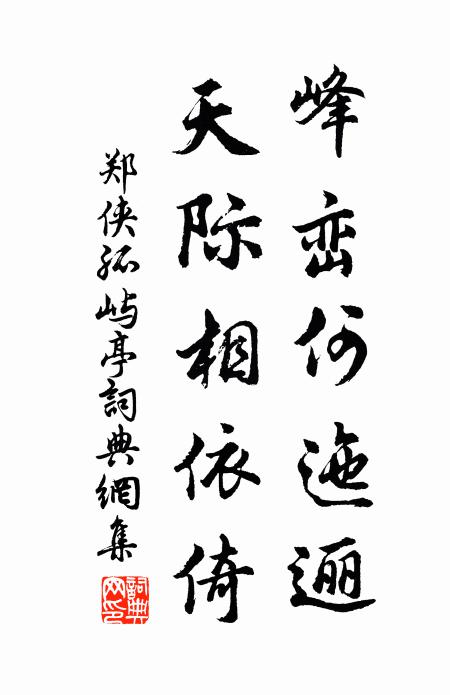 峰峦何迤逦
天际相依倚
郑侠孤屿亭詞典網集